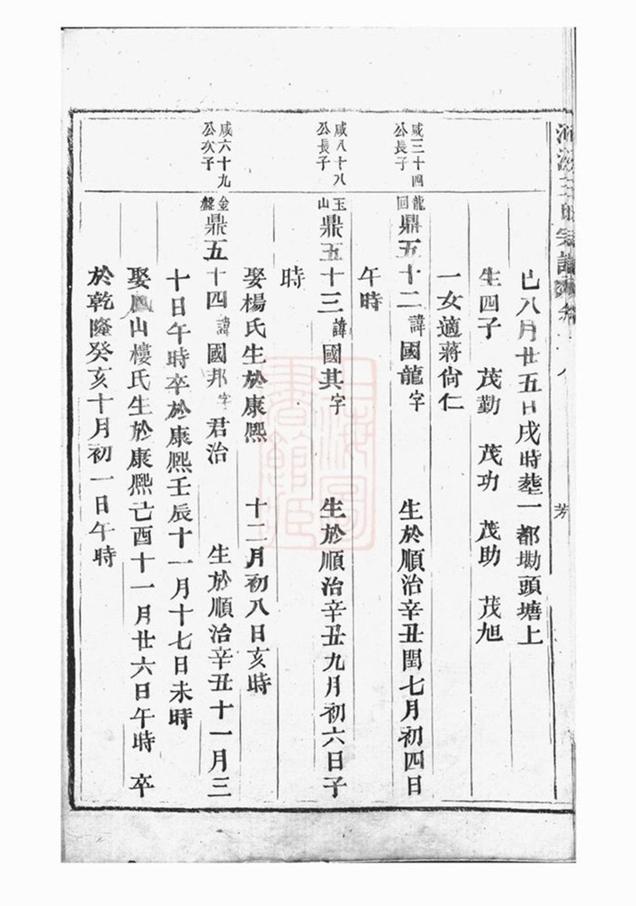 巳八月廿五日戌時塟一都塘頭塘上
生四子 茂勤 茂功 茂助 茂旭
一女適蔣尙仁
咸三十四公長子
龍回 鼎五十二 諱國龍字 生於順治辛丑閏七月初四日
午時
咸八十八公長子
玉山 鼎五十三 諱國其字 生於順治辛丑九月初六日子
時
娶楊氏生於康熙 十二月初八日亥時
咸六十九公次子
金盤 鼎五十四 諱國邦字君治 生於順治辛丑十一月三
十日午時卒於康熙壬辰十一月十七日未時
娶鳳山樓氏生於康熙己酉十一月廿六日午時 卒
於乾隆癸亥十月初一日午時